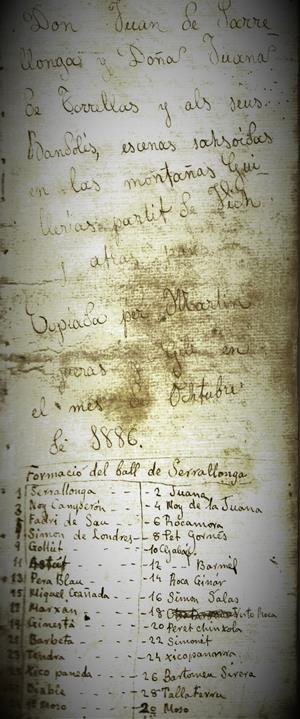 Don Juan de Sarre
llonga y Doña Juana
de Torrellas y als seus
Bandolés, escenas
en las montañas Gui
llerias partit de Vich
y atras
Copiada per Martin
y en
el mes de Octubre
de 1886.
Formació del ball de Serrallonga
1 Serrallonga - 2 Juana
3 Noy Canyserón - 4 Noy de la Juana
5 Fadri de Sau - 6 Rocamora
Simon de Londres - 8 Pet Gornés
9 Goliút - 10
11 - 12 Barnél
13 Pera Blau - 14 Roca Ginár
15 Miguel Cañada - 16 Simon Salas
17 Marxan - 18 Roca
19 Ginestá - 20 Peret chinxola
21 Barbeta - 22 Simonét
23 Tendra - 24 xicopanarra
25 Xico paneda - 26 Bartomeu Sirera
27 Diable - 28 Tallaferru
1º Moso - 2º Moso